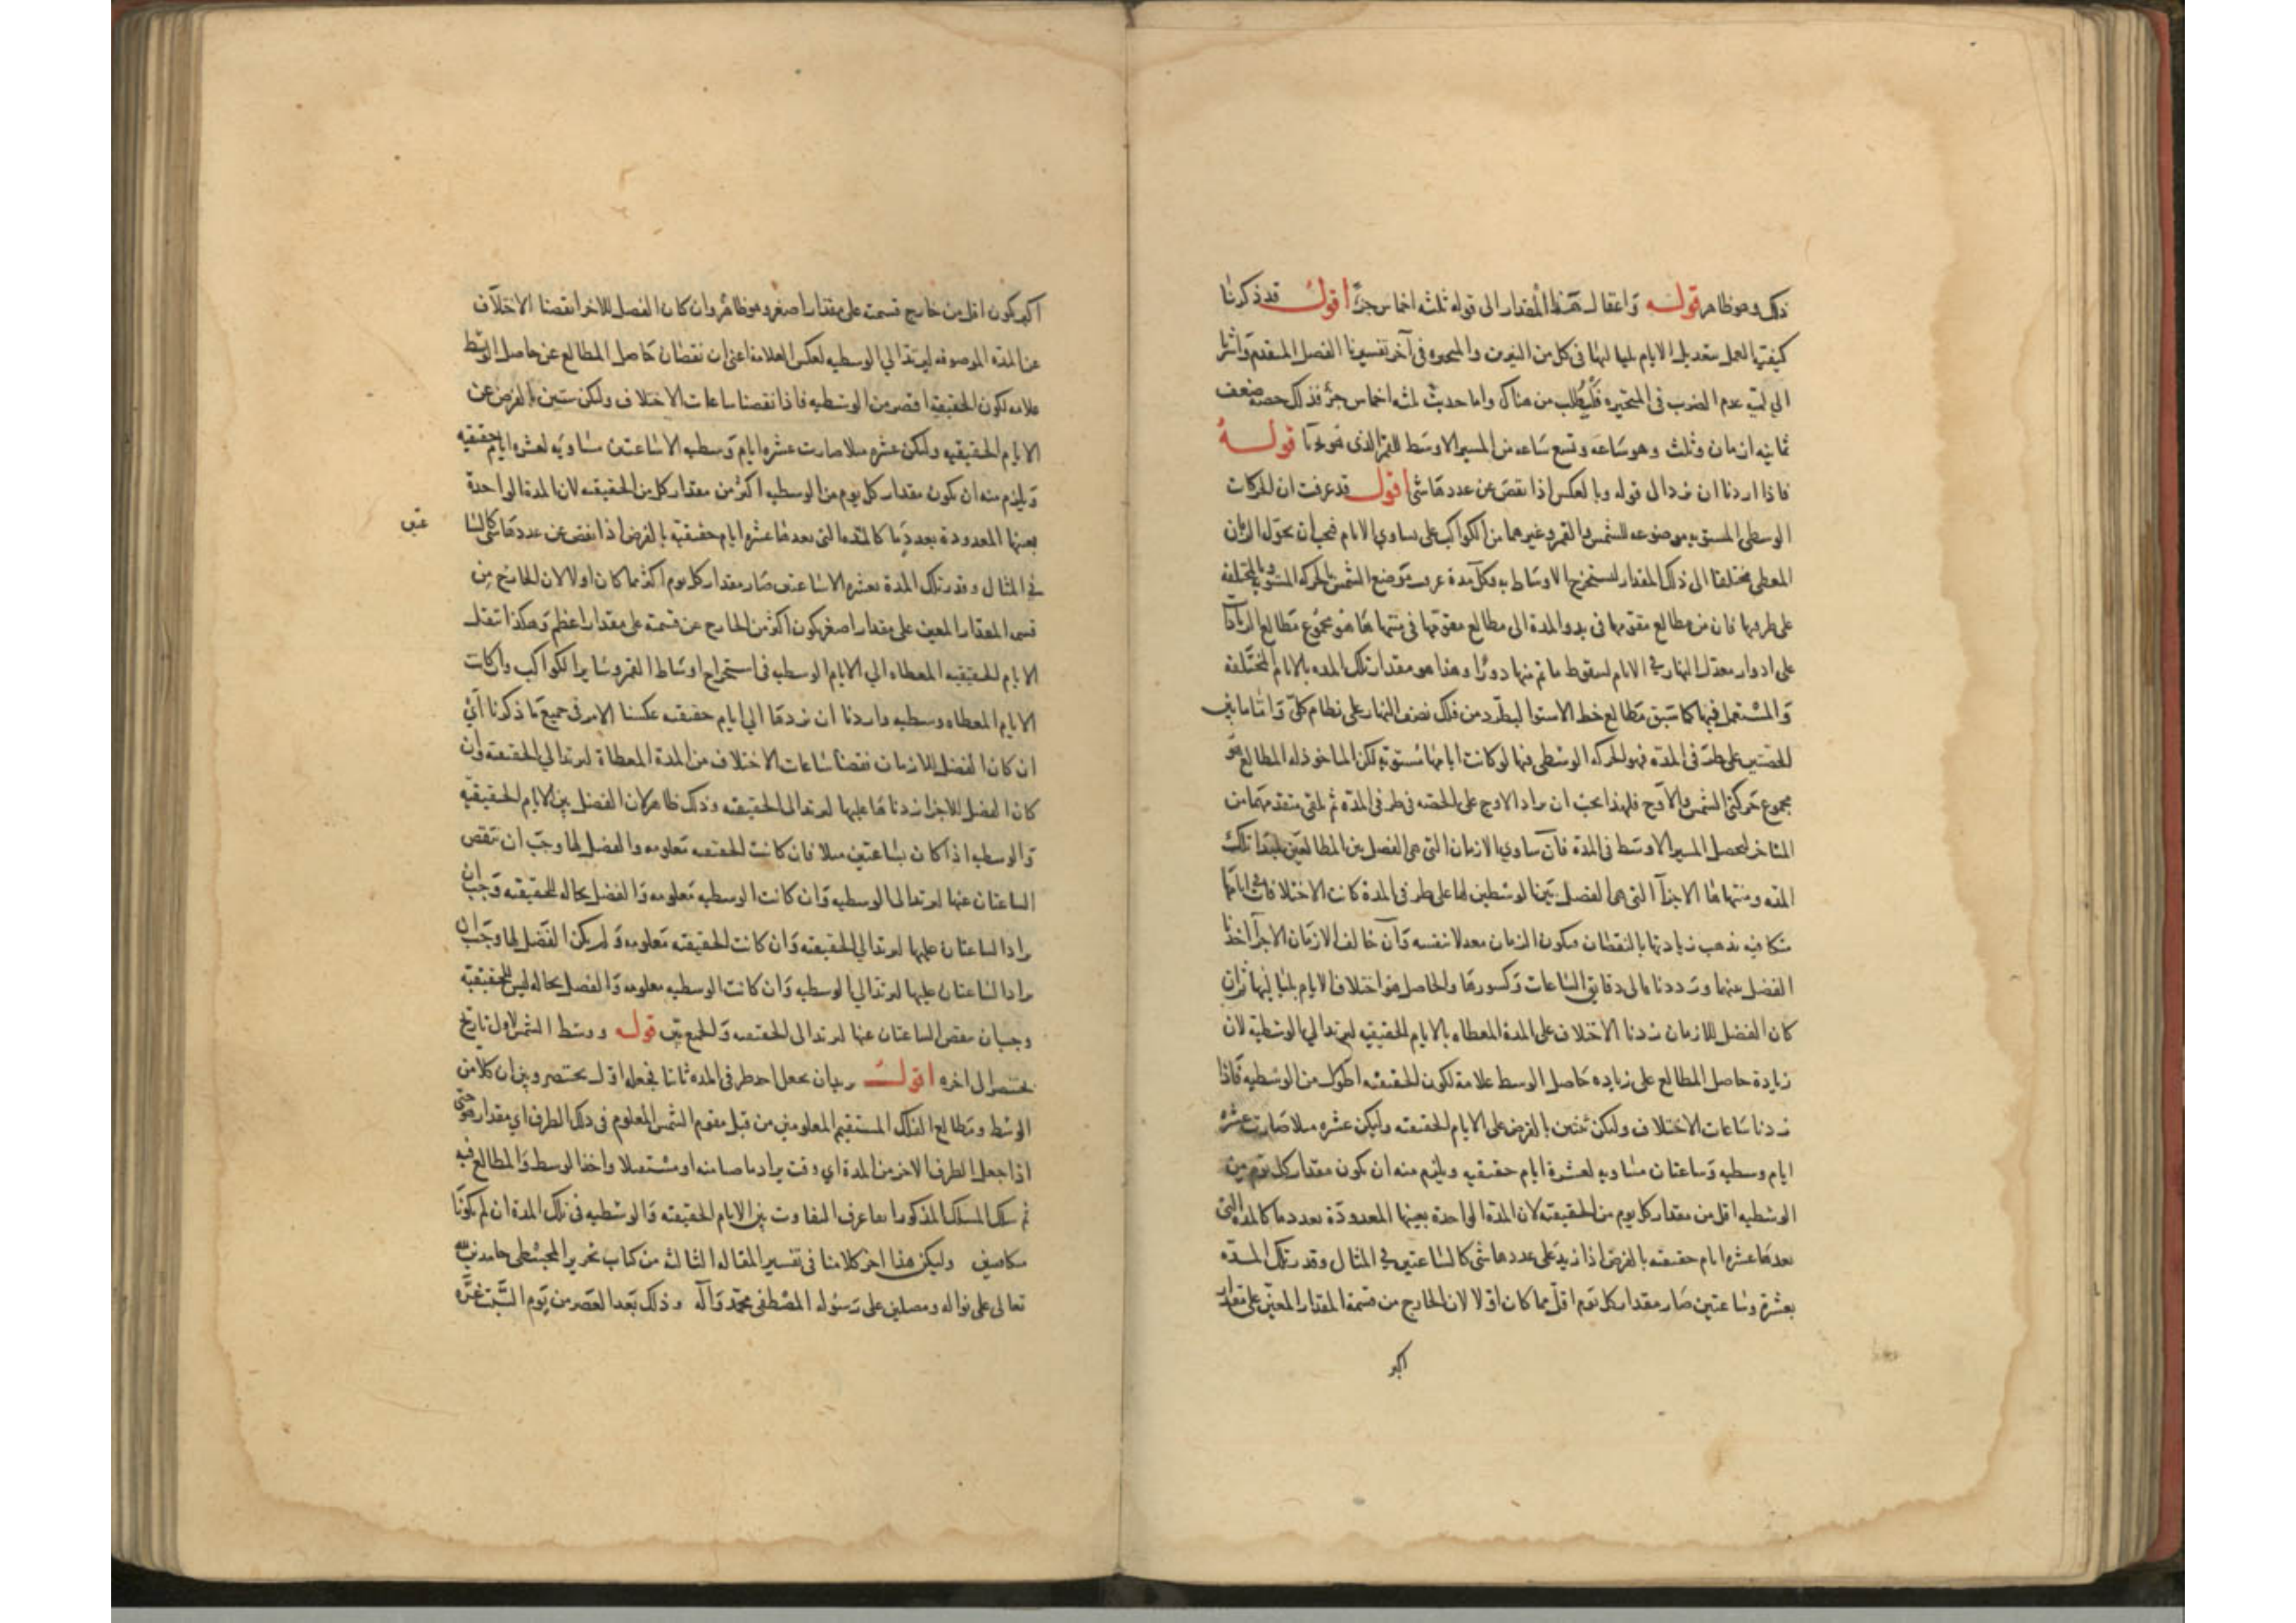 ذلك وهو ظاهر قوله واغفال هذا المقدار الى قوله ثلثه اخماس جزء اقول قد ذكرنا
كيفيه العمل بتعديل الايام بلياليها فى كل من النيرين والمتحيره فى آخر تفسيرنا الفصل المتقدم واشرنا
الى لميه عدم الضرب فى المتحيره فليطلب من هناك واما حديث ثلثه اخماس جزء فذلك حصه ضعف
ثمانيه ازمان وثلث وهو ساعه وتسع ساعه من المسير الاوسط للقمر الذى هو قوله
فاذا اردنا ان نرد الى قوله وبالعكس اذا نقص عن عددها شى اقول قد عرفت ان الحركات
الوسطى المستويه موضوعه للشمس والقمر وغيرهما من الكواكب على تساوى الايام فيجب ان نحول الزمان
المعطى مختلفا الى ذلك المقدار لنستخرج الاوساط به وكل مدة عرف موضع الشمس بالحركه المستويه وبالمختلفه
على طرفيها فان من مطالع مقومها فى بدو المدة الى مطالع مقومها فى منتهاها هو مجموع مطالع
على ادوار معدل النهار فى الايام لسقوط ما تم منها دورا وهذا هو مقدار تلك المده بالايام المختلفه
والمستعمل فيها كما سبق مطالع خط الاستوا ليطرد من فلك نصف النهار على نظام كلى واما ما بين
الحصتين على طرفى المدة فهو الحركه الوسطى فيها لو كانت ايامها مستويه لكن الماخوذ له المطالع هو
مجموع حركتى الشمس والاوج فلهذا يجب ان يزاد الاوج على الحصه فى طرفى المدة ثم يلقى متقدمهما من
المتاخر ليحصل المسير الاوسط فى المدة فان تساوى الازمان التى هى الفصل بين المطالعين لمبدا تلك
المده ومنتهاها الاجزآ التى هى الفصل بين الوسطين لها على طرفى المدة كانت الاختلافات فى ايامها
متكافيه يذهب زيادتها بالنقصان فيكون الزمان معدلا بنفسه وان خالف الازمان الاجزآ اخذنا
الفضل بينهما ورددناه الى دقايق الساعات وكسورها والحاصل هو اختلاف الايام بلياليها ثم ان
كان الفضل للازمان زدنا الاختلاف على المدة المعطاه بالايام الحقيقيه ليرتد الى الوسطيه لان
زيادة حاصل المطالع على زياده حاصل الوسط علامة لكون الحقيقيه اطول من الوسطيه فاذا
زدنا ساعات الاختلاف ولتكن ثنتين بالفرض على الايام الحقيقيه وليكن عشره مثلا صارت عشره
ايام وسطيه وساعتان مساويه لعشرة ايام حقيقيه ويلزم منه ان يكون مقدار كل يوم من
الوسطيه اقل من مقدار كل يوم من الحقيقيه لان المدة الواحدة بعينها المعدودة بعدد ما كالمدة التى
بعدها عشره ايام حقيقيه بالفرض اذا زيد على عددها شى كالساعتين فى المثال وقدر تلك المده
بعشرة وساعتين صار مقدار كل يوم اقل مما كان اولا لان الخارج من قسمة المقدار المعين على مقدار
اكبر
اكبر يكون اقل من خارج قسمته على مقدار اصغر وهو ظاهر وان كان الفضل للاخر انقصنا الاختلاف
عن المدة الموصوفه ليرتد الى الوسطيه لعكس العلامة اعنى ان نقصان حاصل المطالع عن حاصل الوسط
علامه لكون الحقيقيه اقصر من الوسطيه فاذا نقصنا ساعات الاختلاف ولتكن ثنتين بالفرض عن
الايام الحقيقيه ولتكن عشره مثلا صارت عشره ايام وسطيه الا ساعتين مساويه لعشره ايام حقيقيه
ويلزم منه ان يكون مقدار كل يوم من الوسطيه اكثر من مقدار كل من الحقيقيه لان المدة الواحدة
بعينها المعدودة بعدد ما كالمدة التى بعدها عشره ايام حقيقيه بالفرض اذا نقص عن عددها شى كالسا
عتين
فى المثال وقدر تلك المدة بعشره الا ساعتين صار مقدار كل يوم اكثر مما كان اولا لان الخارج من
قسمه المقدار المعين على مقدار اصغر يكون اكثر من الخارج عن قسمته على مقدار اعظم وهكذا تنقل
الايام الحقيقيه المعطاه الى الايام الوسطيه فى استخراج اوساط القمر وساير الكواكب وان كانت
الايام المعطاه وسطيه واردنا ان نردها الى ايام حقيقيه عكسنا الامر فى جميع ما ذكرنا اى
ان كان الفضل للازمان نقصنا ساعات الاختلاف من المدة المعطاة ليرتد الى الحقيقيه وان
كان الفضل للاجزا زدناها عليها ليرتد الى الحقيقيه وذلك ظاهر لان الفضل بين الايام الحقيقيه
والوسطيه اذا كان بساعتين مثلا فان كانت الحقيقيه معلومه والفضل لها وجب ان تنقص
الساعتان عنها ليرتد الى الوسطيه وان كانت الوسطيه معلومه والفضل بحاله للحقيقيه وجب ان
يزاد الساعتان عليها ليرتد الى الحقيقيه وان كانت الحقيقيه معلومه ولم يكن الفضل لها وجب ان
يزاد الساعتان عليها ليرتد الى الوسطيه وان كانت الوسطيه معلومه والفضل بحاله ليس للحقيقيه
وجب ان ينقص الساعتان عنها ليرتد الى الحقيقيه والجميع بين قوله ووسط الشمس لاول تاريخ
بختنصر الى اخره اقول ان يجعل احد طرفى المده ثابتا نجعله اول بختنصر وبين ان كلا من
الوسط ومطالع الفلك المستقيم المعلومين من قبل مقوم الشمس المعلوم فى ذلك الطرف اى مقدار هو حتى
اذا جعل الطرف الاخر من المدة اى وقت يراد ماضيا منه او مستقبلا واخذ الوسط والمطالع فيه
ثم سلك المسلك المذكور انما عرف التفاوت بين الايام الحقيقيه والوسطيه فى تلك المدة ان لم يكونا
متكافيين وليكن هذا اخر كلامنا فى تفسير المقاله الثالثه من كتاب تحرير المجسطى حامدين لله
تعالى على نواله ومصلين على رسوله المصطفى محمد وآله وذلك بعد العصر من يوم السبت غرة